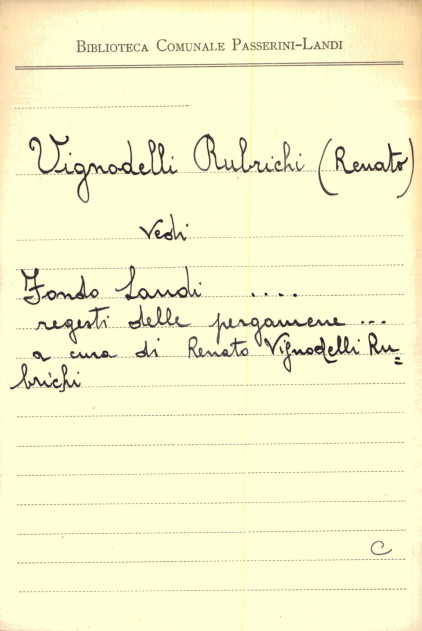 BIBLIOTECA COMUNALE PASSERINI-LANDI
Vignodelli Rubrichi (Renato)
Vedi
Fondo Landi ....
regesti delle pergamene ...
a cura di Renato Vignodelli Ru=
brichi
C